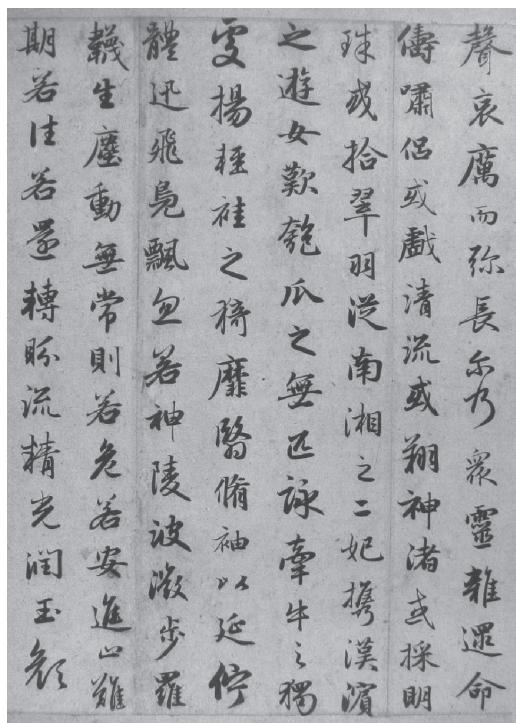 聲哀厲而弥長尔乃衆靈雜遝命
儔嘯侣或戲清流或翔神渚或採明
珠或拾翠羽從南湘之二妃携漢濱
之遊女歎匏瓜之無匹詠牽牛之獨
處揚輕袿之猗靡翳脩袖以延佇
體迅飛鳧飄忽若神陵波微步羅
韈生塵動無常則若危若安進止難
期若往若還轉眄流精光潤玉顏